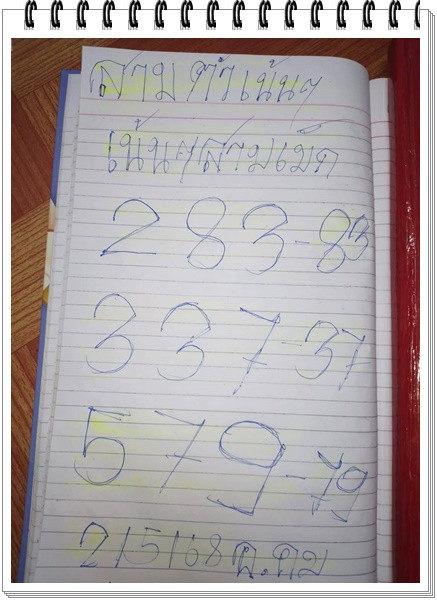 สามตัวเน้นๆ
เน้นๆสามเม็ด
283-83
337-37
579-79
2/5/68